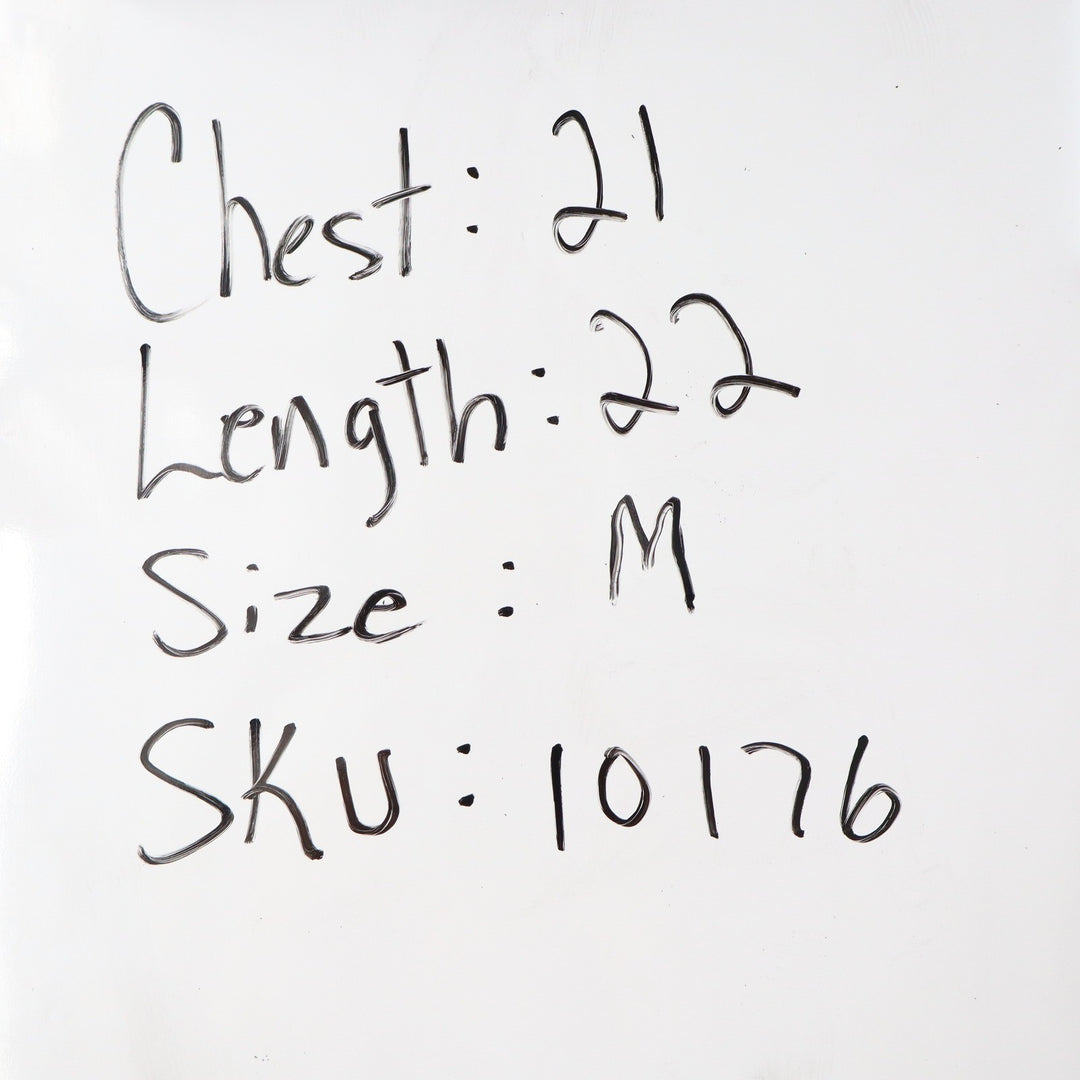 Chest: 21
Length: 22
Size: M
SKU: 10176